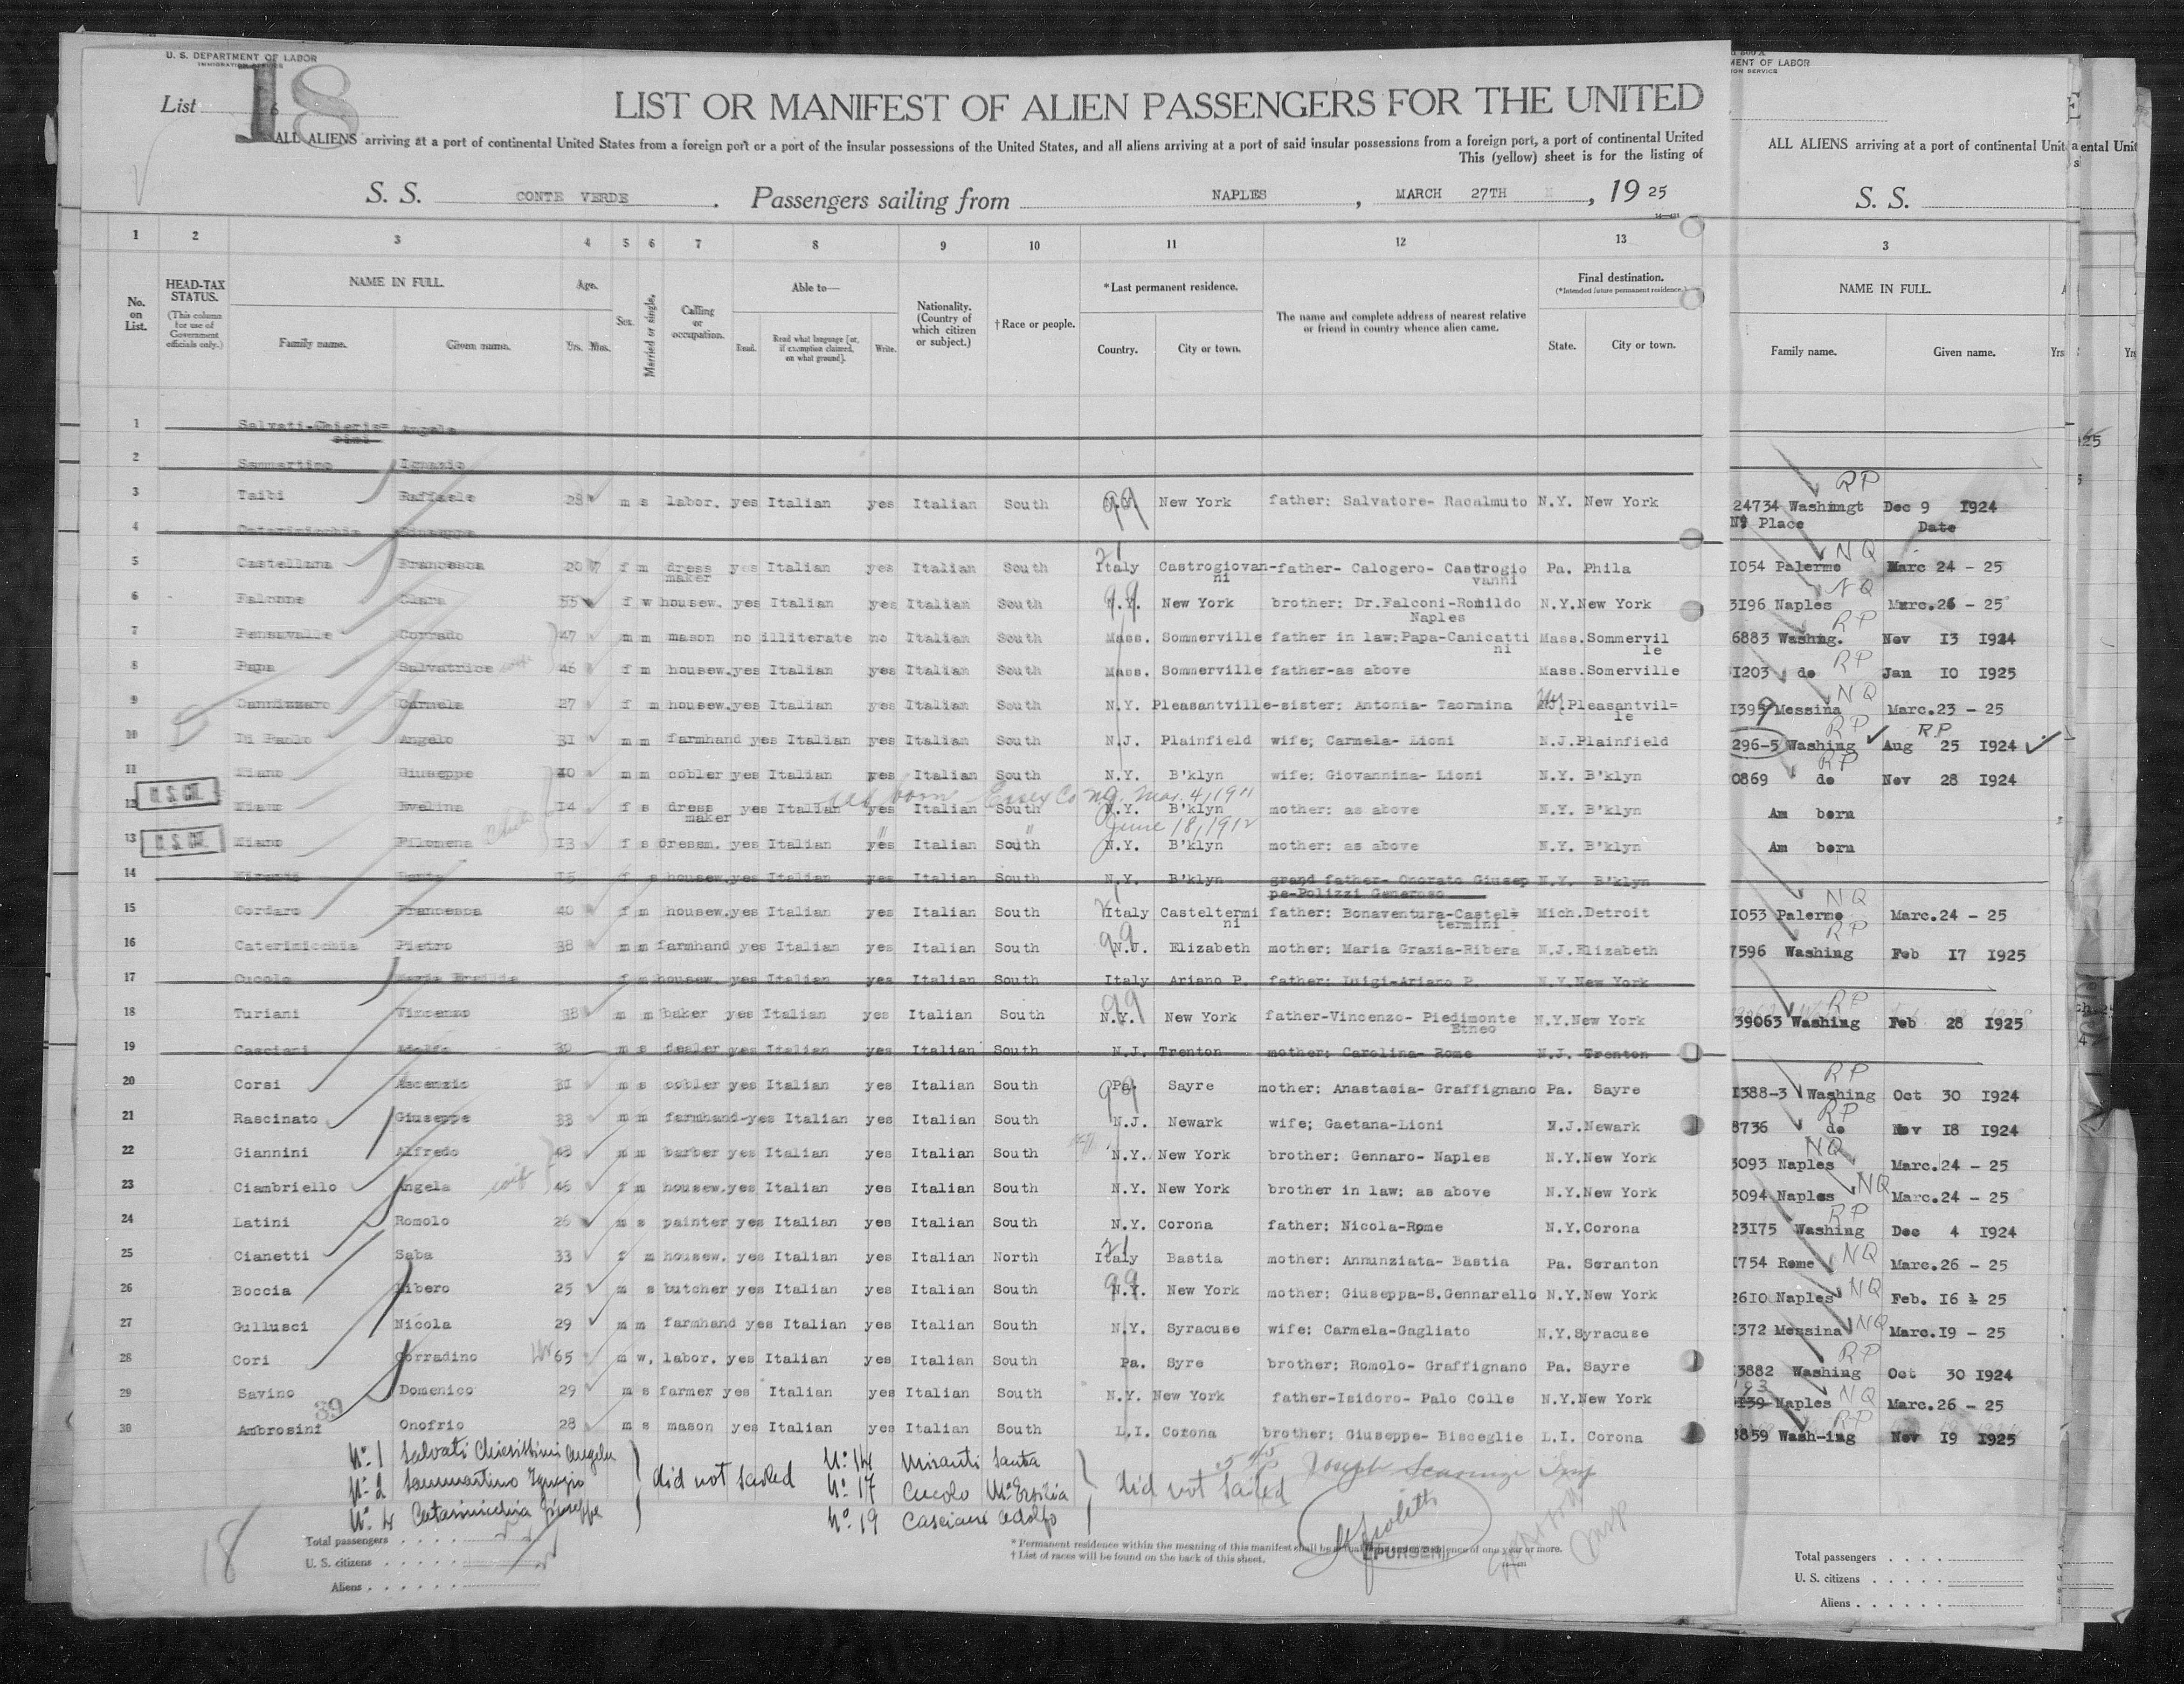 U. S. DEPARTMENT OF LABOR
IMMIGRATION SERVICE
List 6
18
LIST OR MANIFEST OF ALIEN PASSENGERS FOR THE UNITED
ALL ALIENS arriving at a port of continental United States from a foreign port or a port of the insular possessions of the United States, and all aliens arriving at a port of said insular possessions from a foreign port, a port of continental United
This (yellow) sheet is for the listing of
S. S. CONTE VERDE. Passengers sailing from NAPLES, MARCH 27TH, 19 25
1 2 3 4 5 6 7 8 9 10 11 12 13
No. on List.
HEAD-TAX STATUS.
(This column for use of Government officials only.)
NAME IN FULL.
Family name. Given name.
Age.
Yrs. Mos.
Sex.
Married or single.
Calling or occupation.
Able to—
Read. Read what language [or, if exemption claimed, on what ground]. Write.
Nationality. (Country of which citizen or subject.)
†Race or people.
*Last permanent residence.
Country. City or town.
The name and complete address of nearest relative or friend in country whence alien came.
Final destination.
(*Intended future permanent residence.)
State. City or town.
1 Salvati-Chieris= Angela
sini
2 Sammartino Ignazio
3 Taibi Raffaele 28 m s labor. yes Italian yes Italian South N.Y. New York father: Salvatore- Racalmuto N.Y. New York
99
4 Caterinicchia Giuseppe
5 Castellana Francesca 20 f m dress yes Italian yes Italian South Italy Castrogiovan-father- Calogero- Castrogio Pa. Phila
maker ni vanni
21
6 Falcone Clara 55 f w housew. yes Italian yes Italian South N.Y. New York brother: Dr.Falconi-Romildo N.Y.New York
Naples
99
7 Pensavalle Corrado 47 m m mason no illiterate no Italian South Mass. Sommerville father in law:Papa-Canicatti Mass.Sommervil
ni le
8 Papa Salvatrice wife 46 f m housew.yes Italian yes Italian South Mass. Sommerville father-as above Mass.Somerville
9 Cannizzaro Carmela 27 f m housew.yes Italian yes Italian South N.Y. Pleasantville-sister: Antonia- Taormina N.J. Pleasantvil=
le
10 Di Paolo Angelo 31 m m farmhand yes Italian yes Italian South N.J. Plainfield wife; Carmela- Lioni N.J.Plainfield
11 Miano Giuseppe 40 m m cobler yes Italian yes Italian South N.Y. B'klyn wife: Giovannina- Lioni N.Y. B'klyn
U. S. CIT.
12 Miano Evelina 14 f s dress yes Italian yes Italian South N.Y. B'klyn mother: as above N.Y. B'klyn
maker
born Essex Co NJ. Mar. 4, 1911
June 18, 1912
U. S. CIT.
13 Miano Filomena 13 f s dressm. yes Italian yes Italian South N.Y. B'klyn mother: as above N.Y. B'klyn
14 Miranti Santa 15 f s housew.yes Italian yes Italian South N.Y. B'klyn grand father- Onorato Giusep N.Y. B'klyn
pe-Polizzi Generoso
15 Cordaro Francesca 40 f m housew.yes Italian yes Italian South Italy Casteltermi father: Bonaventura-Castel= Mich.Detroit
ni termini
16 Caterinicchia Pietro 38 m m farmhand yes Italian yes Italian South N.J. Elizabeth mother: Maria Grazia-Ribera N.J.Elizabeth
99
17 Cucolo Maria Ersilia f m housew. yes Italian yes Italian South Italy Ariano P. father: Luigi-Ariano P. N.Y.New York
18 Turiani Vincenzo 38 m m baker yes Italian yes Italian South N.Y. New York father-Vincenzo- Piedimonte N.Y.New York
Etneo
99
19 Casciani Adolfo 30 m s dealer yes Italian yes Italian South N.J. Trenton mother: Carolina- Rome N.J. Trenton
20 Corsi Ascenzio 31 m s cobler yes Italian yes Italian South Pa. Sayre mother: Anastasia- Graffignano Pa. Sayre
99
21 Rascinato Giuseppe 33 m m farmhand-yes Italian yes Italian South N.J. Newark wife; Gaetana-Lioni N.J.Newark
22 Giannini Alfredo 48 m m barber yes Italian yes Italian South N.Y. New York brother: Gennaro- Naples N.Y.New York
23 Ciambriello Angela wife 46 f m housew.yes Italian yes Italian South N.Y. New York brother in law: as above N.Y.New York
24 Latini Romolo 26 m s painter yes Italian yes Italian South N.Y. Corona father: Nicola-Rome N.Y.Corona
25 Cianetti Saba 33 f m housew. yes Italian yes Italian North Italy Bastia mother: Annunziata- Bastia Pa. Scranton
21
26 Boccia Libero 25 m s butcher yes Italian yes Italian South N.Y. New York mother: Giuseppa-S.Gennarello N.Y.New York
99
27 Gullusci Nicola 29 m m farmhand yes Italian yes Italian South N.Y. Syracuse wife: Carmela-Gagliato N.Y.Syracuse
28 Cori Corradino 65 m w. labor. yes Italian yes Italian South Pa. Syre brother: Romolo- Graffignano Pa. Sayre
29 Savino Domenico 29 m s farmer yes Italian yes Italian South N.Y. New York father-Isidoro- Palo Colle N.Y.New York
39
30 Ambrosini Onofrio 28 m s mason yes Italian yes Italian South L.I. Corona brother: Giuseppe- Bisceglie L.I. Corona
No. 1 Salvati Chierissini Angela
No. 2 Sammartino Ignazio
No. 4 Caterinicchia Giuseppe
did not sailed
No. 14 Miranti Santa
No. 17 Cucolo Ma. Ersilia
No. 19 Casciani Adolfo
did not sailed
18
Total passengers . . . .
U. S. citizens . . . . .
Aliens . . . . . .
* Permanent residence within the meaning of this manifest shall be actual or intended residence of one year or more.
† List of races will be found on the back of this sheet.
PURSER
Insp
MENT OF LABOR
ION SERVICE
ALL ALIENS arriving at a port of continental Unit
S. S.
3
NAME IN FULL.
Family name. Given name. Yrs
RP
24734 Washingt Dec 9 1924
No Place Date
NQ
1054 Palermo Marc 24 - 25
NQ
3196 Naples Marc.26 - 25
RP
6883 Washng. Nov 13 1924
RP
1203 do Jan 10 1925
NQ
1399 Messina Marc.23 - 25
RP RP
296-5 Washing Aug 25 1924
RP
0869 do Nov 28 1924
Am born
Am born
NQ
1053 Palermo Marc.24 - 25
RP
7596 Washing Feb 17 1925
RP
39063 Washing Feb 28 1925
RP
1388-3 Washing Oct 30 1924
RP
8736 do Nov 18 1924
NQ
3093 Naples Marc.24 - 25
NQ
3094 Naples Marc.24 - 25
RP
23175 Washing Dec 4 1924
1754 Rome NQ Marc.26 - 25
2610 Naples NQ Feb. 16 - 25
1372 Messina NQ Marc.19 - 25
RP
3882 Washing Oct 30 1924
193 NQ
1139 Naples Marc.26 - 25
RP
3859 Wash-ing Nov 19 1925
Total passengers . . . .
U. S. citizens . . . . .
Aliens . . . . . .
ental Unit